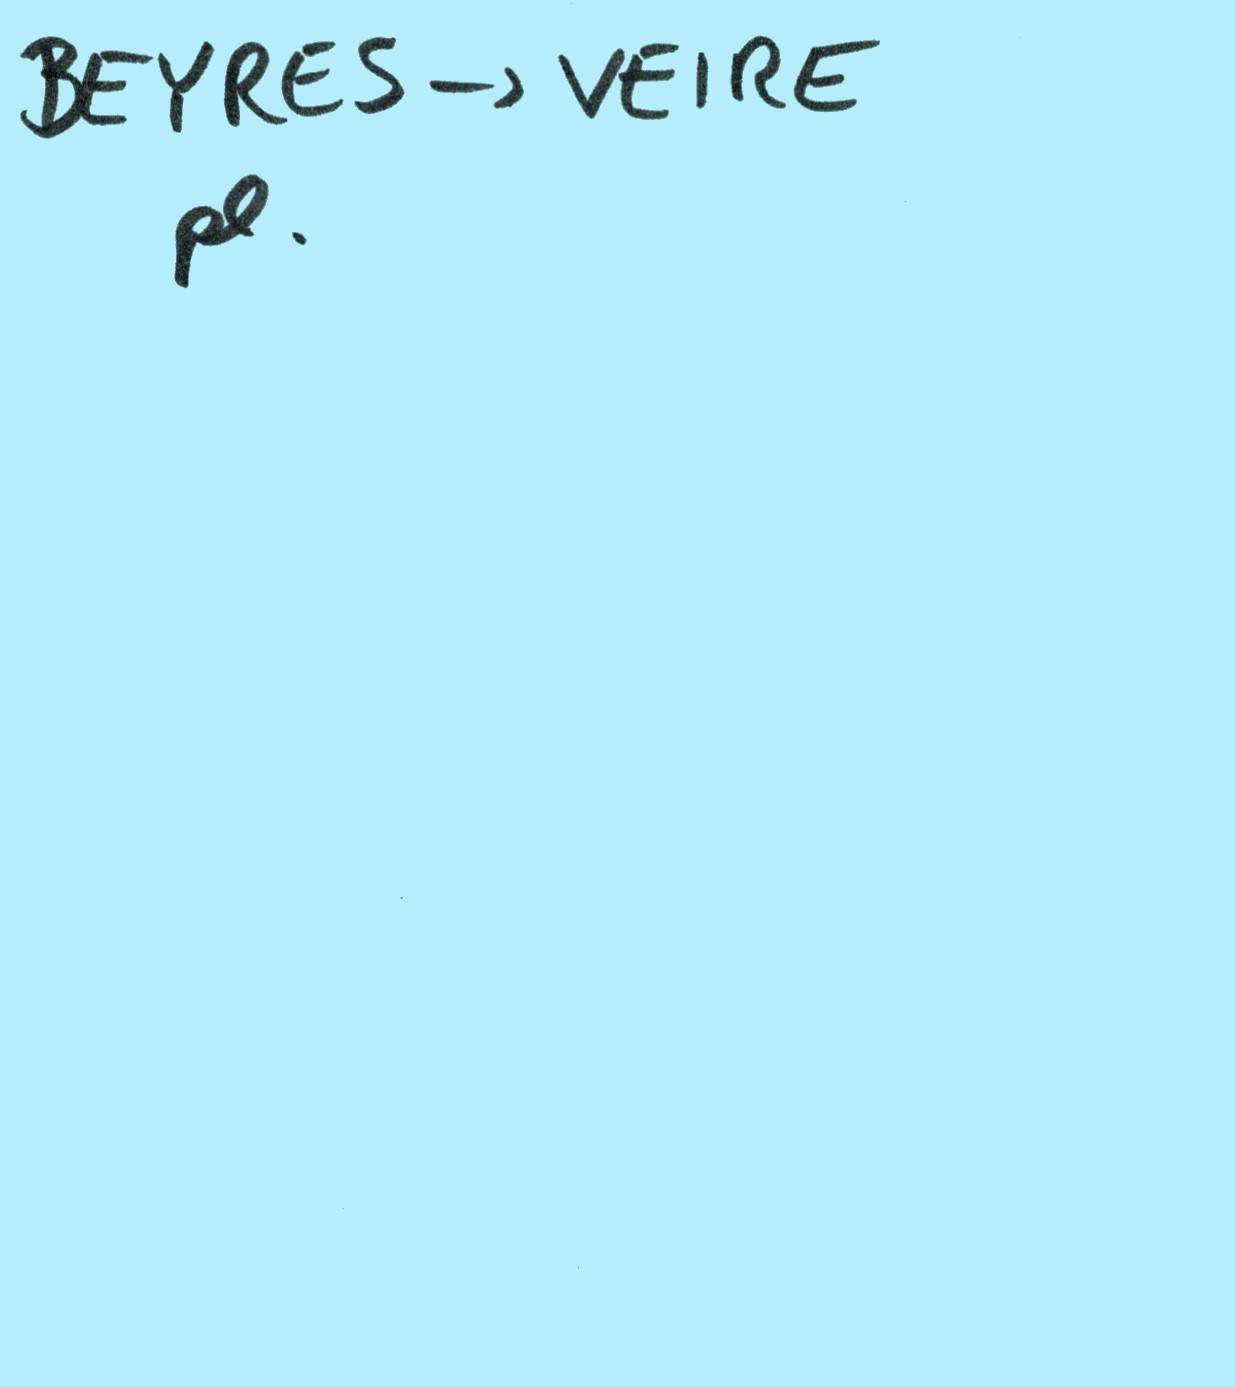 BEYRES -> VEIRE
pl.